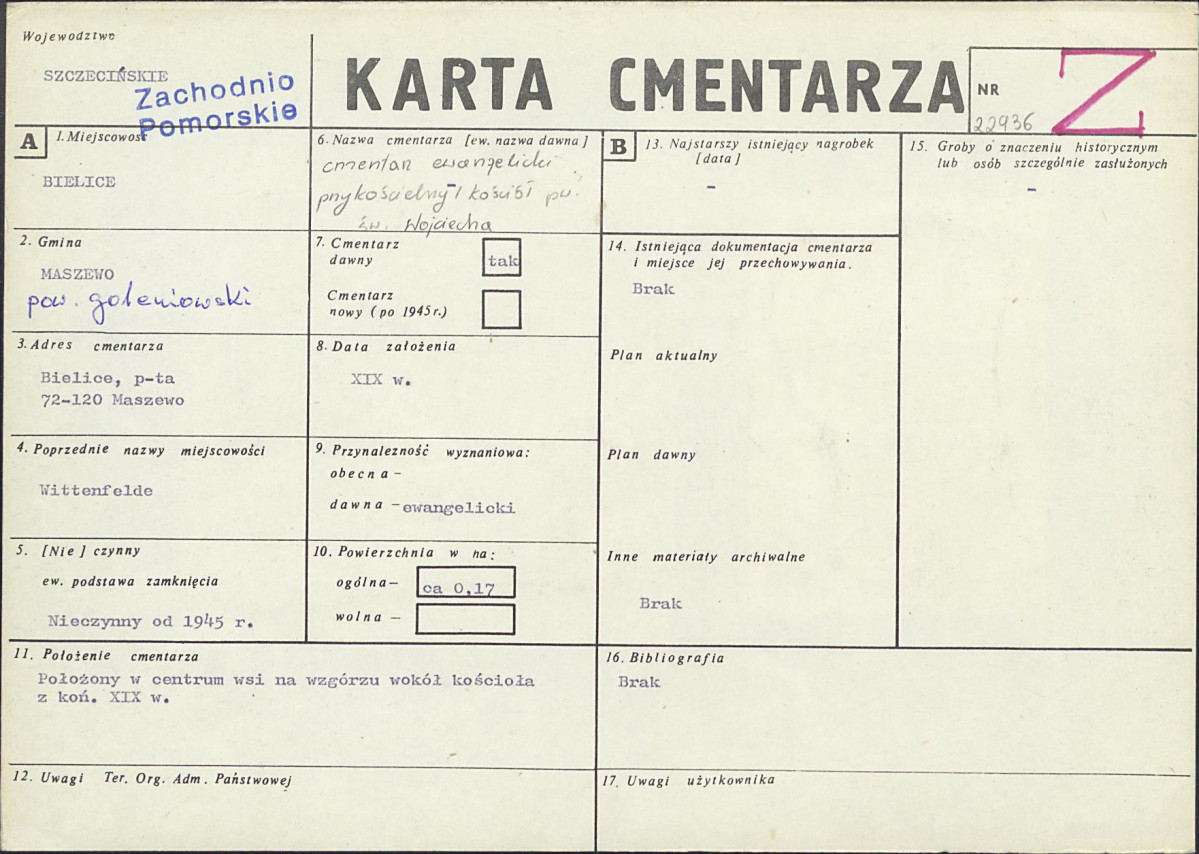 Województwo
SZCZECIŃSKIE
Zachodnio
Pomorskie
KARTA CMENTARZA
NR
22936
Z
A
1. Miejscowość
BIELICE
2. Gmina
MASZEWO
pow. goleniowski
3. Adres cmentarza
Bielice, p-ta
72-120 Maszewo
4. Poprzednie nazwy miejscowości
Wittenfelde
5. [Nie] czynny
ew. podstawa zamknięcia
Nieczynny od 1945 r.
6. Nazwa cmentarza [ew. nazwa dawna]
cmentarz ewangelicki
przykościelny / kościół pw.
św. Wojciecha
7. Cmentarz
dawny
tak
Cmentarz
nowy (po 1945r.)
8. Data założenia
XIX w.
9. Przynależność wyznaniowa:
obecna -
dawna - ewangelicki
10. Powierzchnia w ha:
ogólna - ca 0,17
wolna -
11. Położenie cmentarza
Położony w centrum wsi na wzgórzu wokół kościoła
z koń. XIX w.
12. Uwagi Ter. Org. Adm. Państwowej
B
13. Najstarszy istniejący nagrobek
[data]
-
14. Istniejąca dokumentacja cmentarza
i miejsce jej przechowywania.
Brak
Plan aktualny
Plan dawny
Inne materiały archiwalne
Brak
15. Groby o znaczeniu historycznym
lub osób szczególnie zasłużonych
-
16. Bibliografia
Brak
17. Uwagi użytkownika